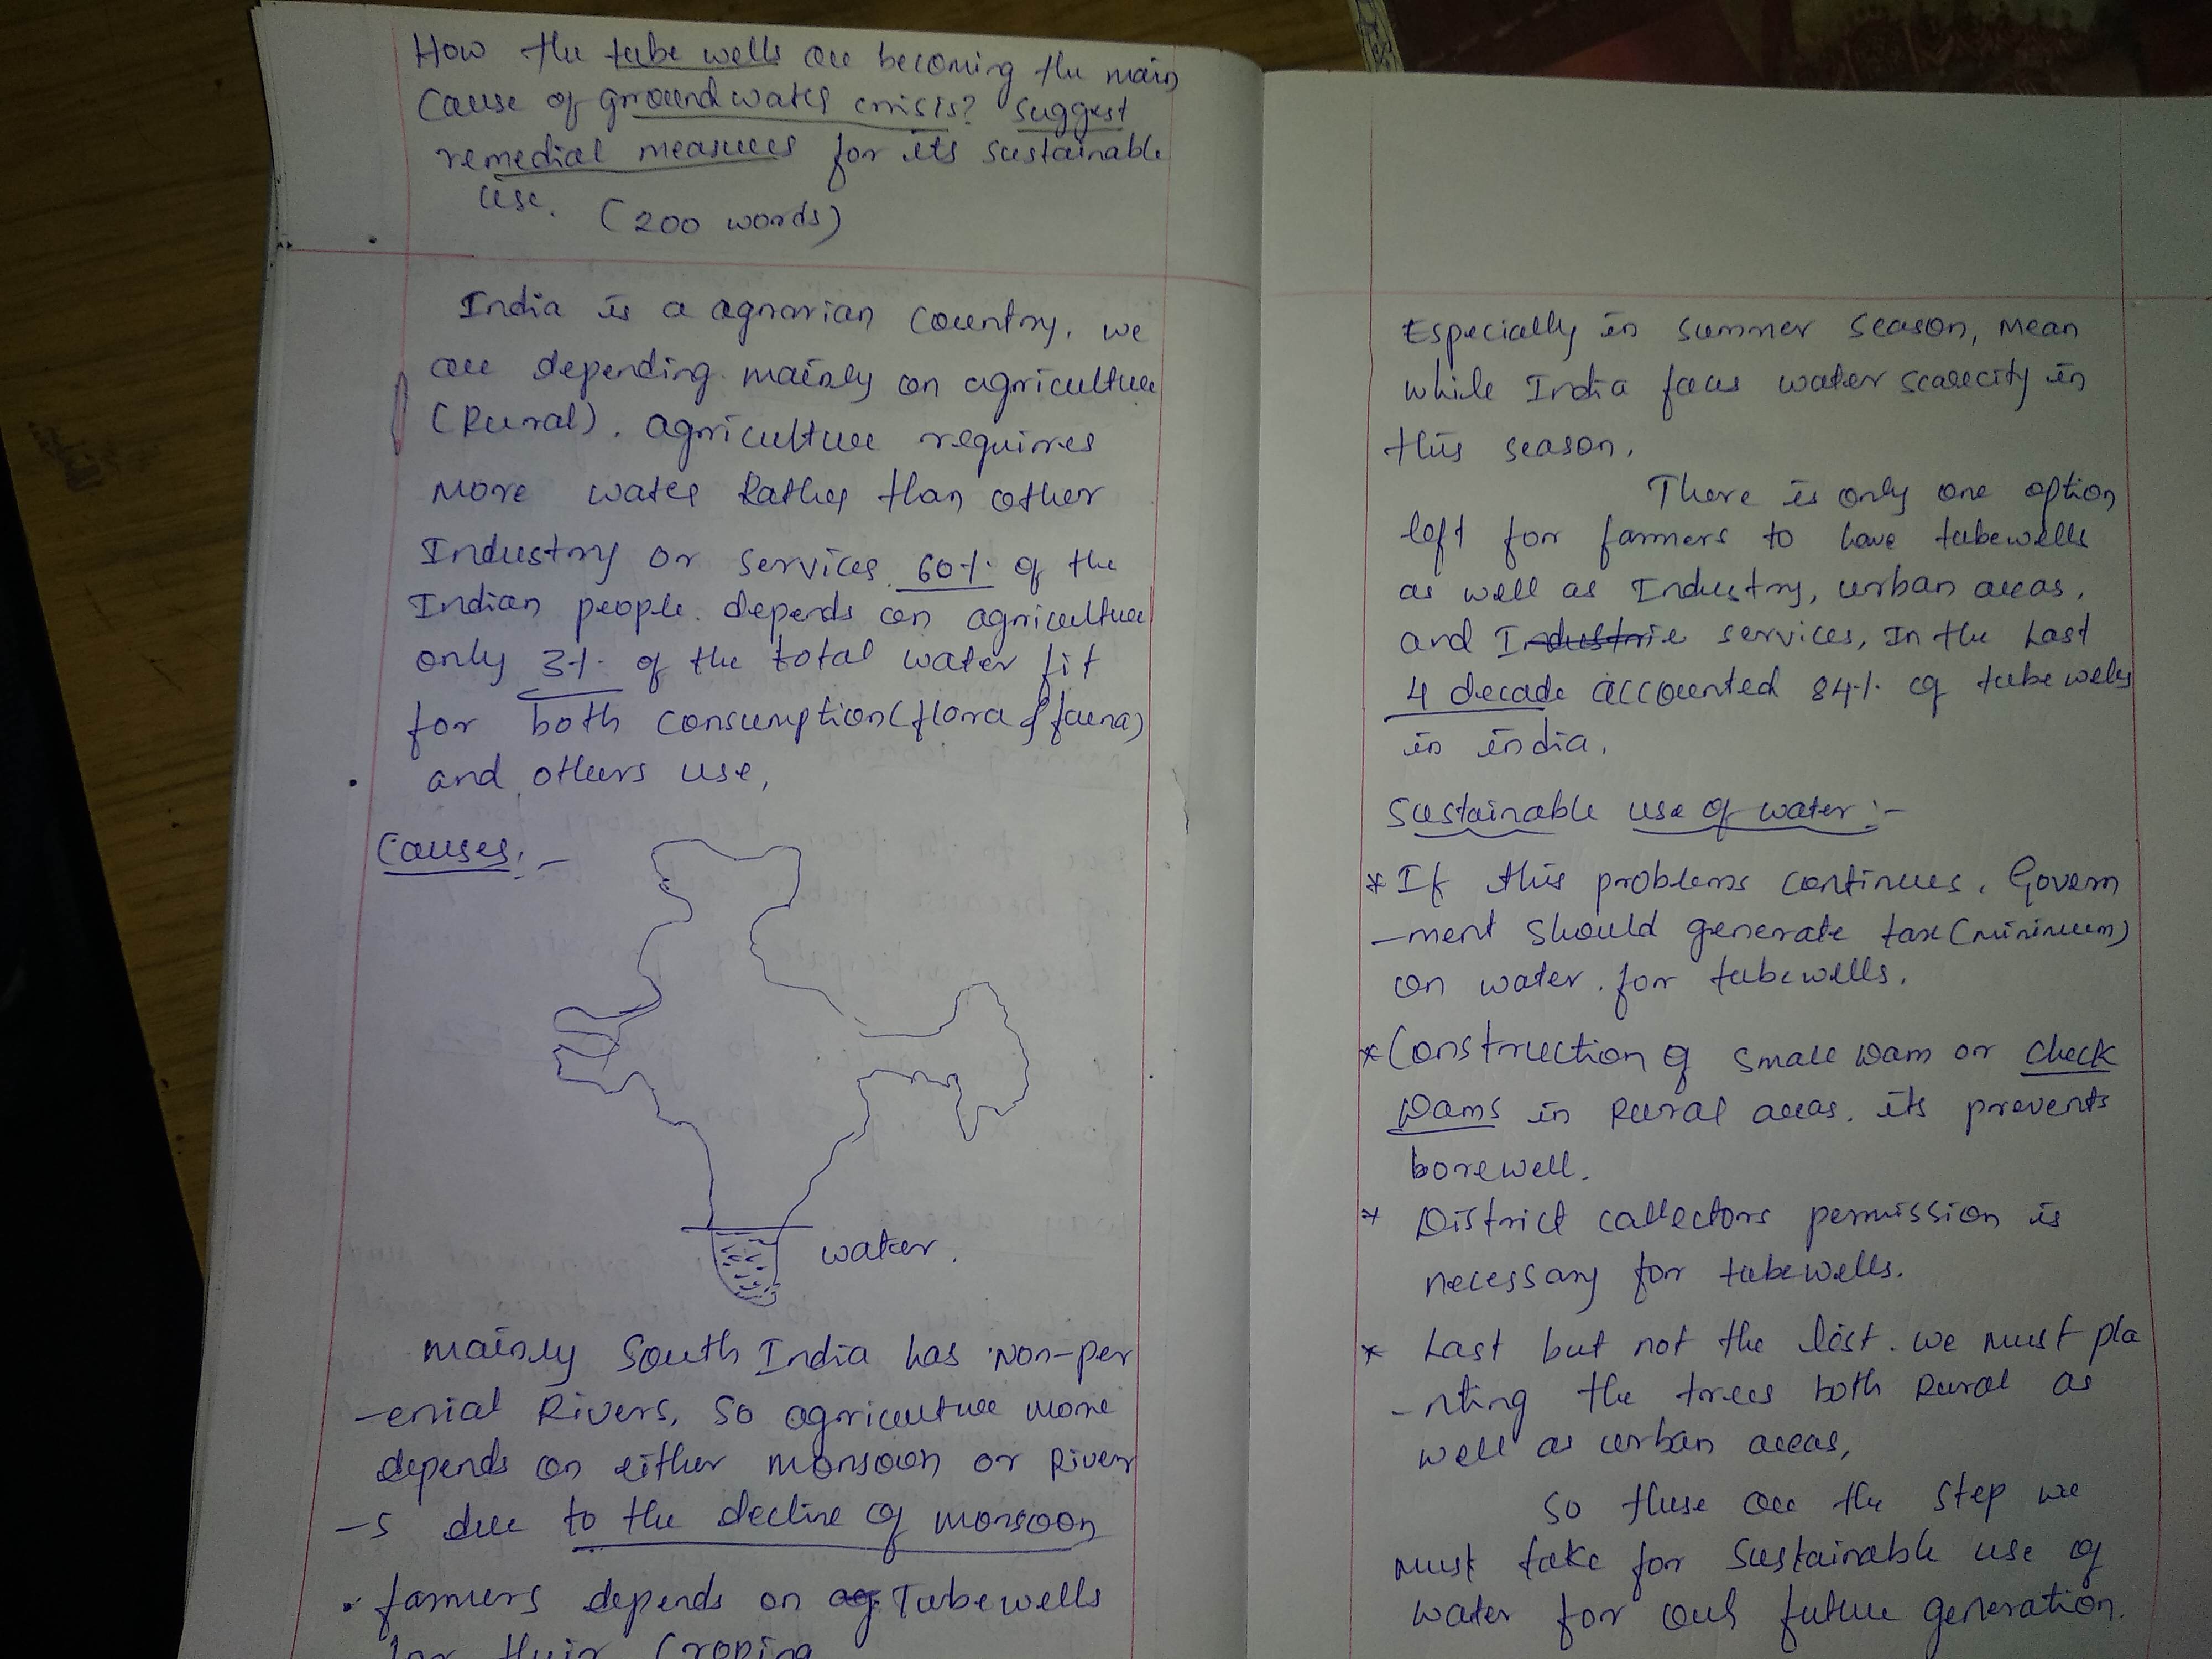 How the tube wells are becoming the main
cause of groundwater crisis? suggest
remedial measures for its sustainable
use. (200 words)
India is a agrarian country, we
are depending mainly on agriculture
(Rural). agriculture requires
more water Rather than other
Industry or services. 60% of the
Indian people depends on agriculture
only 3% of the total water fit
for both consumption (flora & fauna)
and others use,
Causes:-
water.
mainly South India has Non-per
-enial Rivers, so agriculture more
depends on either monsoon or River
-s due to the decline of monsoon
farmers depends on ag Tubewells
for their Croping
Especially in summer season, Mean
while India faces water scarecity in
this season.
There is only one option
left for farmers to have tubewells
as well as Industry, urban areas,
and Industrie services, In the Last
4 decade accounted 84% of tubewells
in india.
Sustainable use of water:-
* If this problems continues. Govern
-ment should generate tax (minimum)
on water for tubewells.
* Construction of small Dam or check
Dams in Rural areas. its prevents
borewell.
* District collectors permission is
necessary for tubewells.
* Last but not the list. we must pla
-nting the trees both Rural as
well as urban areas,
So these are the step we
must take for sustainable use of
water for our future generation.